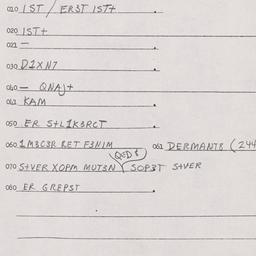 010 IST / ER3T IST+
020 IST+
021 —
030 D1XN7
040 — QNAJ+
041 KAM
050 ER S+L1K3RCT
060 1M3C3R RET F3NIM 061 DERMANT8 (244
070 S+VER XOPM MUT3N SOP3T S+VER
080 ER GREPST